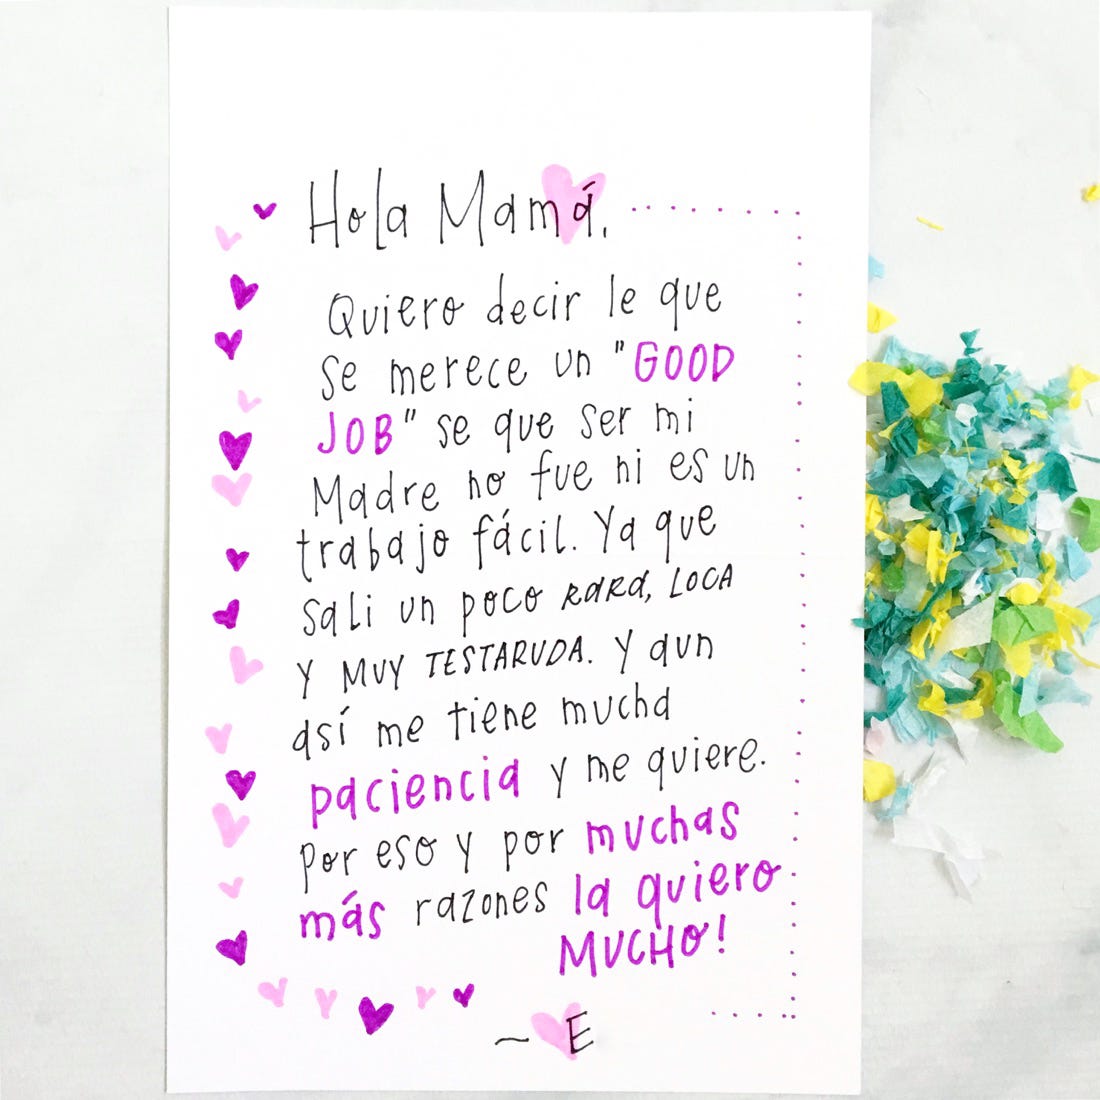 Hola Mamá.
Quiero decir le que
se merece un "GOOD
JOB" se que ser mi
Madre no fue ni es un
trabajo fácil. Ya que
sali un poco RARA, LOCA
Y MUY TESTARUDA. Y aun
así me tiene mucha
paciencia y me quiere.
Por eso y por muchas
más razones la quiero
MUCHO!
~ E